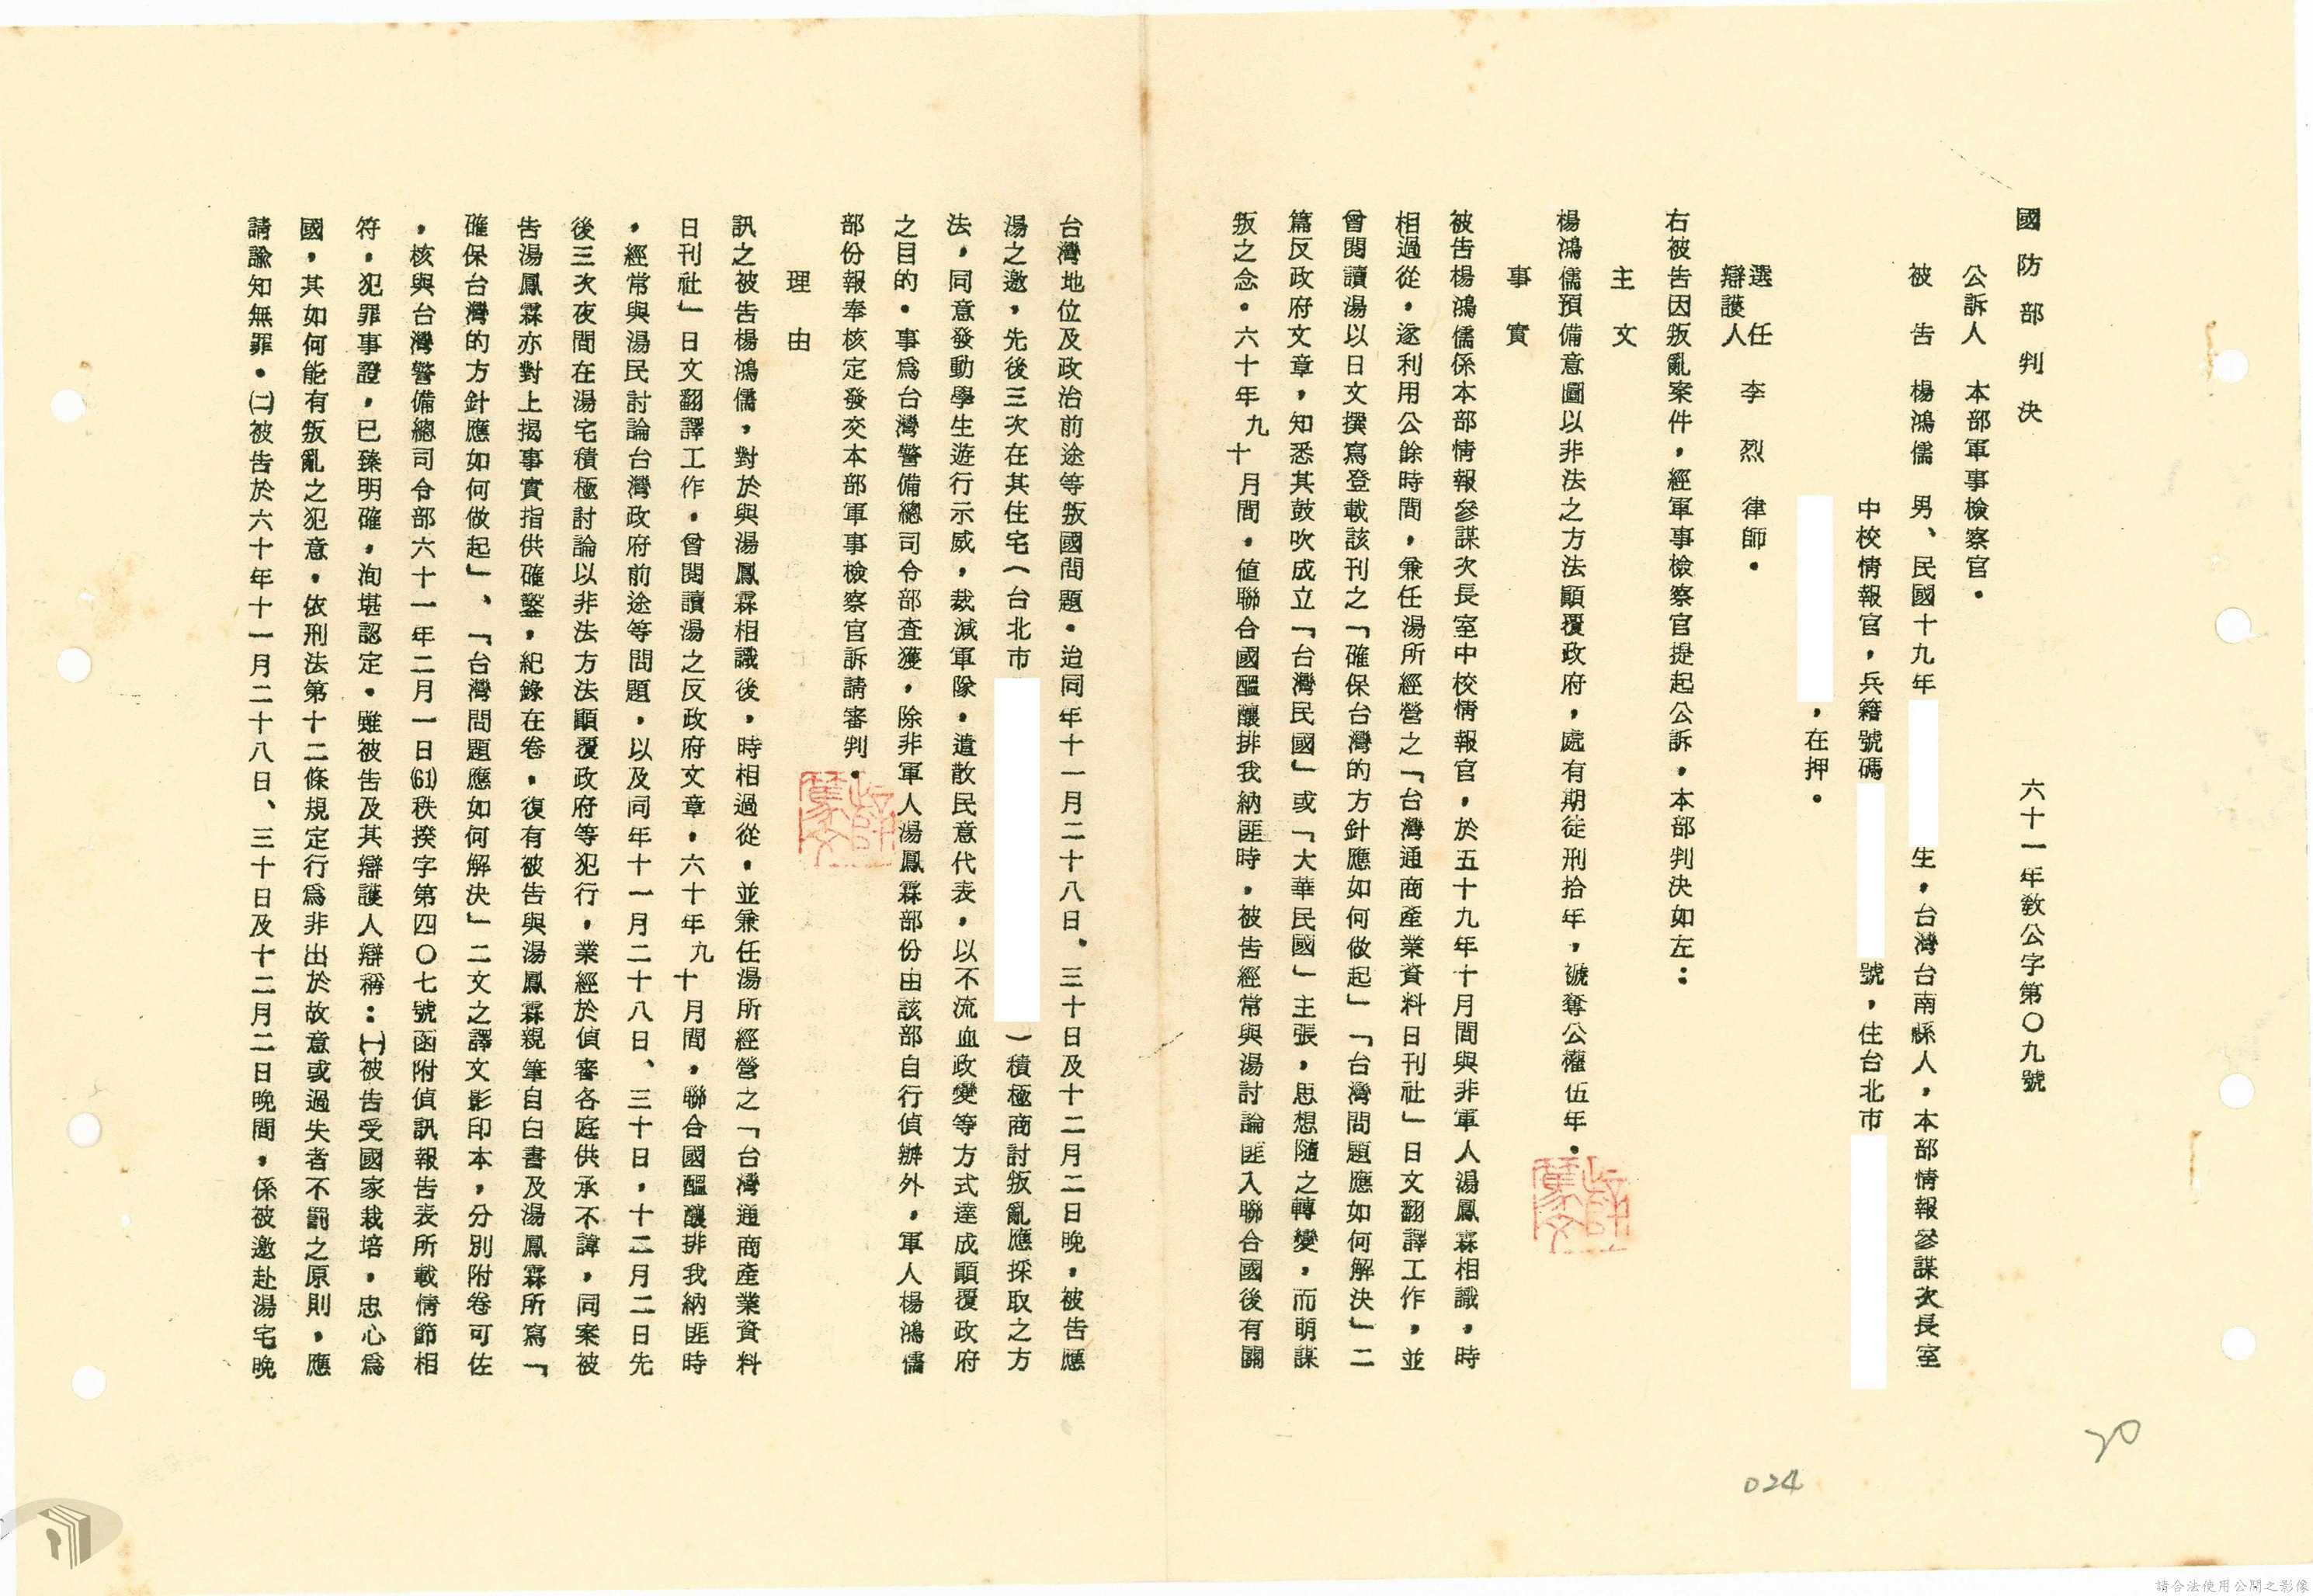 國防部判決　六十一年教公字第〇九號
公訴人　本部軍事檢察官．
被　告　楊鴻儒　男、民國十九年　生，台灣台南縣人，本部情報參謀次長室
中校情報官，兵籍號碼　號，住台北市
，在押．
選任辯護人　李　烈　律師．
右被告因叛亂案件，經軍事檢察官提起公訴，本部判決如左：
主　文
楊鴻儒預備意圖以非法之方法顚覆政府，處有期徒刑拾年，褫奪公權伍年．
事　實
被告楊鴻儒係本部情報參謀次長室中校情報官，於五十九年十月間與非軍人湯鳳霖相識，時
相過從，遂利用公餘時間，兼任湯所經營之「台灣通商產業資料日刊社」日文翻譯工作，並
曾閱讀湯以日文撰寫登載該刊之「確保台灣的方針應如何做起」「台灣問題應如何解決」二
篇反政府文章，知悉其鼓吹成立「台灣民國」或「大華民國」主張，思想隨之轉變，而萌謀
叛之念．六十年九十月間，值聯合國醞釀排我納匪時，被告經常與湯討論匪入聯合國後有關
台灣地位及政治前途等叛國問題．迨同年十一月二十八日、三十日及十二月二日晚，被告應
湯之邀，先後三次在其住宅（台北市　）積極商討叛亂應採取之方
法，同意發動學生遊行示威，裁減軍隊，遣散民意代表，以不流血政變等方式達成顚覆政府
之目的．事爲台灣警備總司令部查獲，除非軍人湯鳳霖部份由該部自行偵辦外，軍人楊鴻儒
部份報奉核定發交本部軍事檢察官訴請審判．
理　由
訊之被告楊鴻儒，對於與湯鳳霖相識後，時相過從，並兼任湯所經營之「台灣通商產業資料
日刊社」日文翻譯工作，曾閱讀湯之反政府文章，六十年九十月間，聯合國醞釀排我納匪時
，經常與湯民討論台灣政府前途等問題，以及同年十一月二十八日、三十日，十二月二日先
後三次夜間在湯宅積極討論以非法方法顚覆政府等犯行，業經於偵審各庭供承不諱，同案被
告湯鳳霖亦對上揭事實指供確鑿，紀錄在卷，復有被告與湯鳳霖親筆自白書及湯鳳霖所寫「
確保台灣的方針應如何做起」、「台灣問題應如何解決」二文之譯文影印本，分別附卷可佐
，核與台灣警備總司令部六十一年二月一日(61)秩揆字第四〇七號函附偵訊報告表所載情節相
符，犯罪事證，已臻明確，洵堪認定．雖被告及其辯護人辯稱：㈠被告受國家栽培，忠心爲
國，其如何能有叛亂之犯意．依刑法第十二條規定行爲非出於故意或過失者不罰之原則，應
請諭知無罪．㈡被告於六十年十一月二十八日、三十日及十二月二日晚間，係被邀赴湯宅晚
20
024
請合法使用公開之影像